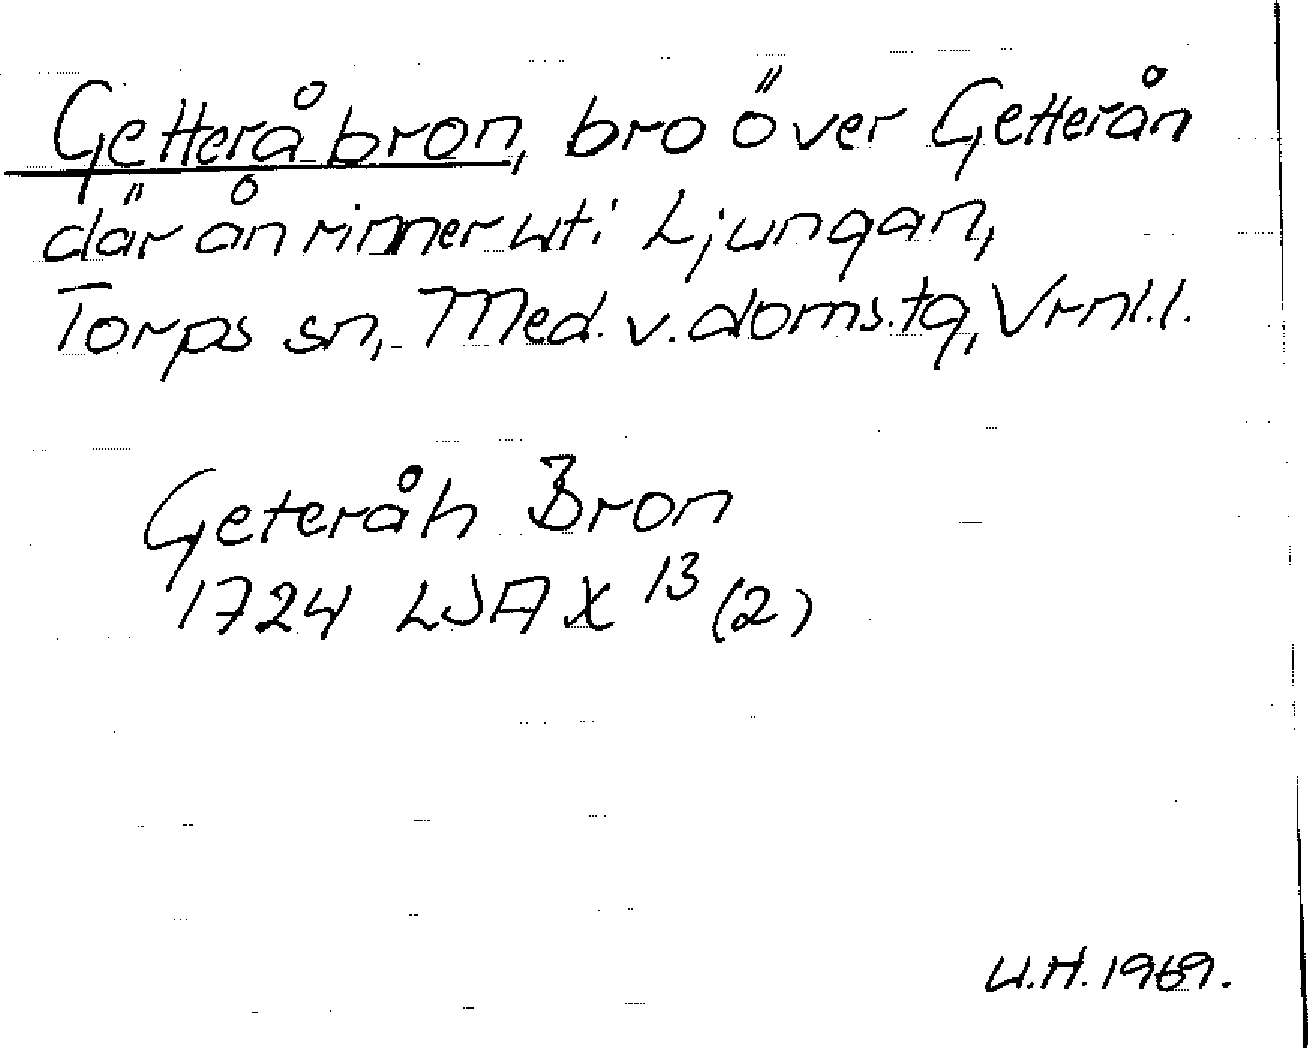 Getteråbron, bro över Getterån
där ån rinner uti Ljungan,
Torps sn, Med. v. doms.tg, Vrnl.l.
Geteråh Bron
1724 LSA X 13 (2)
U.H. 1969.